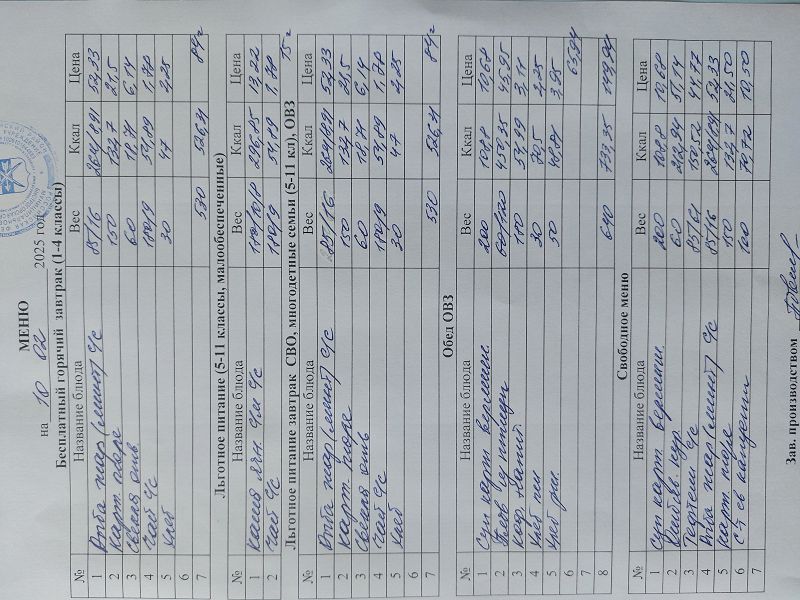 МЕНЮ
на 10 02 2025 год
Бесплатный горячий завтрак (1-4 классы)
№ Название блюда Вес Ккал Цена
1 Рыба жар (минт) с/с 85/15 264/8,91 52,33
2 карт. пюре 150 132,7 21,5
3 свекла 60 18,71 6,14
4 чай с/с 180/9 51,89 1,78
5 хлеб 30 47 2,25
6
7 530 526,21 84 г
Льготное питание (5-11 классы, малообеспеченные)
№ Название блюда Вес Ккал Цена
1 каша с/м с/с 180/10/10 13,22
2 чай с/с 180/9 51,89 1,78
15 г
Льготное питание завтрак СВО, многодетные семьи (5-11 кл), ОВЗ
№ Название блюда Вес Ккал Цена
1 Рыба жар (минт) с/с 85/15 264/8,91 52,33
2 карт. пюре 150 132,7 21,5
3 свекла 60 18,71 6,14
4 чай с/с 180/9 51,89 1,78
5 хлеб 30 47 2,25
6
7 530 526,21 84 г
Обед ОВЗ
№ Название блюда Вес Ккал Цена
1 Суп карт вермиш. 200 108,8 10,68
2 Плов птицы 450,35 45,95
3 напит. 180
4 хлеб пш 30 70,5 2,25
5 хлеб рж. 50 3,95
6
7
8 610 733,35
Свободное меню
№ Название блюда Вес Ккал Цена
1 суп карт вермиш. 200 108,8 10,68
2 кур. 60 51,14
3 Тефтели с/с 150,52
4 Рыба жар (минт) с/с 85/15 264/8,91 52,33
5 карт пюре 150 132,7 21,50
6 с капустой 100 70,72 10,50
7
Зав. производством